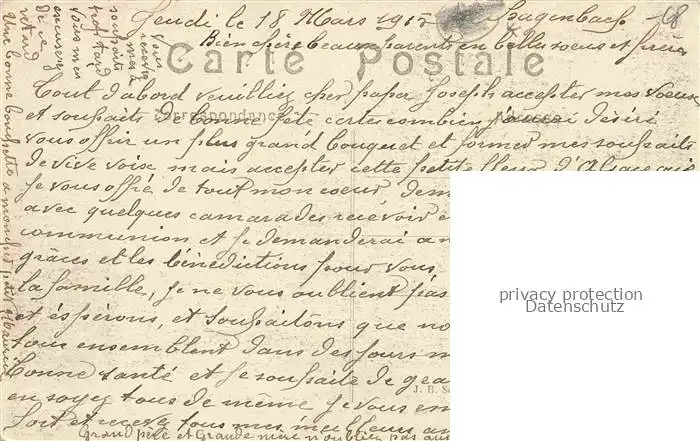 Jeudi le 18 Mars 1915 Hagenbach 18
Bien chère beaux parents en belle soeur et frère
Carte Postale
Tout d'abord veuilliez cher papa Joseph accepter mes voeux
Correspondance
et souhaits de bonne fête certe combien j'aurai désiré
vous offrir un plus grand bouquet et former mes souhaits
de vive voix mais accepter cette petite fleur d'Alsace que
je vous offre de tout mon coeur dem
avec quelques camarades recevoir
communion et je demanderai a
grâces et les bénédictions pour vous
la famille, je ne vous oublient pas
et éspérons, et souhaitons que no
tous ensemblent dans des jours m
bonne santé et je souhaite de
J. B. S
en soyez tous de même je vous em
fort et recevez tous mes meilleurs
Grand père et Grande mere n'oublien pas
vous
recevrez
mes
souhaits
trop tard
vous me
excuserez
de ce
retard
Une bonne à mon petit Maurice
privacy protection
Datenschutz